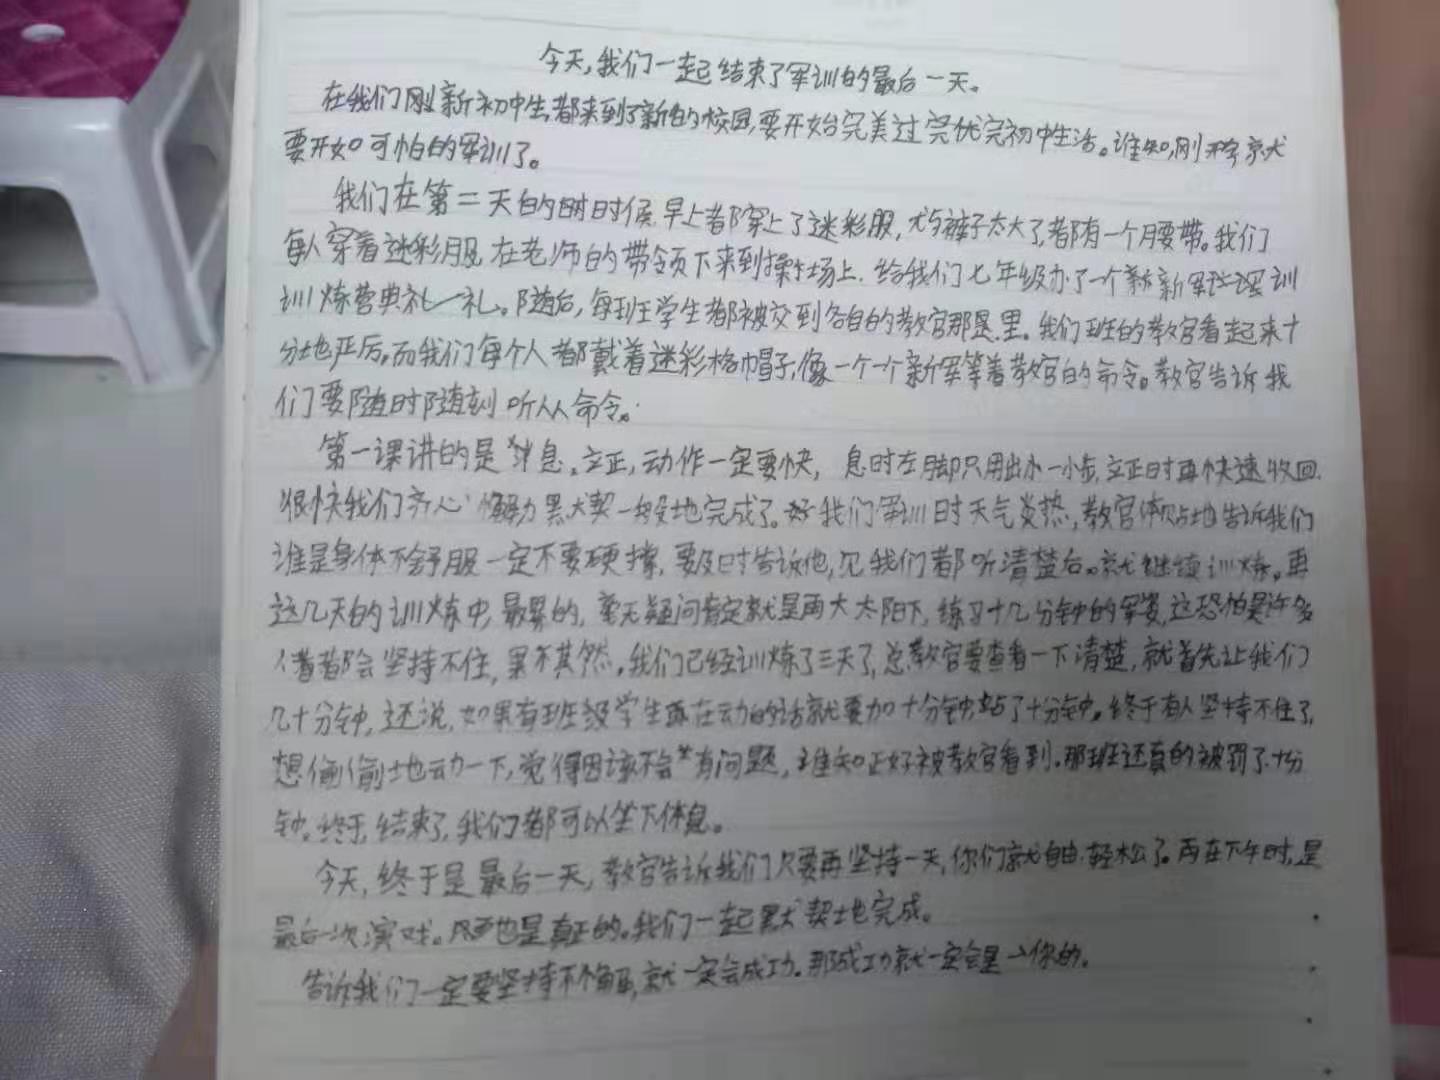 今天,我们一起结束了军训的最后一天。
在我们刚新初中生,都来到了新的校园,要开始完美过完优完初中生活。谁知,刚开学就
要开始可怕的军训了。
我们在第二天的时候,早上都穿上了迷彩服,裤子太大了,都有一个腰带。我们
每人穿着迷彩服,在老师的带领下来到操场上,给我们七年级办了一个新军训
训炼营典礼一礼。随后,每班学生都被交到各自的教官那里。我们班的教官看起来十
分地严厉。而我们每个人都戴着迷彩格帽子,像一个一个新军等着教官的命令。教官告诉我
们要随时随刻听从命令。
第一课讲的是息。立正,动作一定要快,息时左脚只用出小一小步,立正时再快速收回.
很快我们齐心力默契一般地完成了。我们军训时天气炎热,教官体贴地告诉我们
谁是身体不舒服一定不要硬撑,要及时告诉他,见我们都听清楚后。就继续训炼。再
这几天的训炼中,最累的,毫无疑问肯定就是两大太阳下,练习十几分钟的军姿,这恐怕是许多
人都会坚持不住,果不其然。我们已经训炼了三天了,总教官要查看一下清楚,就首先让我们
几十分钟,还说,如果有班级学生再在动的话就要加十分钟,站了十分钟。终于有人坚持不住了,
想偷偷地动一下,觉得因该不会有问题,谁知正好被教官看到。那班还真的被罚了十分
钟。终于,结束了,我们都可以坐下休息。
今天,终于是最后一天,教官告诉我们只要再坚持一天,你们就自由,轻松了。再在下午时,是
最后一次演戏。也是真正的。我们一起默契地完成。
告诉我们一定要坚持不懈,就一定会成功。那成功就一定会是你的.